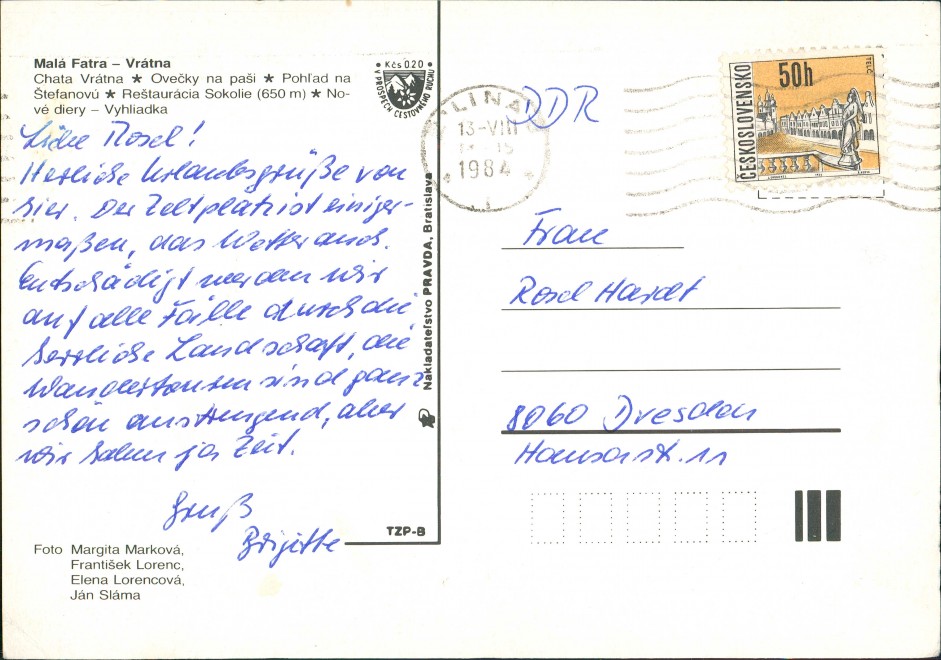 Malá Fatra – Vrátna
Chata Vrátna ★ Ovečky na paši ★ Pohľad na
Štefanovú ★ Reštaurácia Sokolie (650 m) ★ No-
vé diery – Vyhliadka
Liebe Rosel!
Herzliche Urlaubsgrüße von
hier. Der Zeltplatz ist einiger-
maßen, das Wetter auch.
Entschädigt werden wir
auf alle Fälle durch die
herrliche Landschaft, die
Wandertouren sind ganz
schön anstrengend, aber
wir haben ja Zeit.
Gruß
Brigitte
Foto Margita Marková,
František Lorenc,
Elena Lorencová,
Ján Sláma
TZP-B
Kčs 0.20
V PROSPECH CESTOVNÉHO RUCHU
Nakladateľstvo PRAVDA, Bratislava
ŽILINA
13-VIII
1984
DDR
ČESKOSLOVENSKO
50h
TELČ
Frau
Rosel Hardt
8060 Dresden
Hansastr. 11